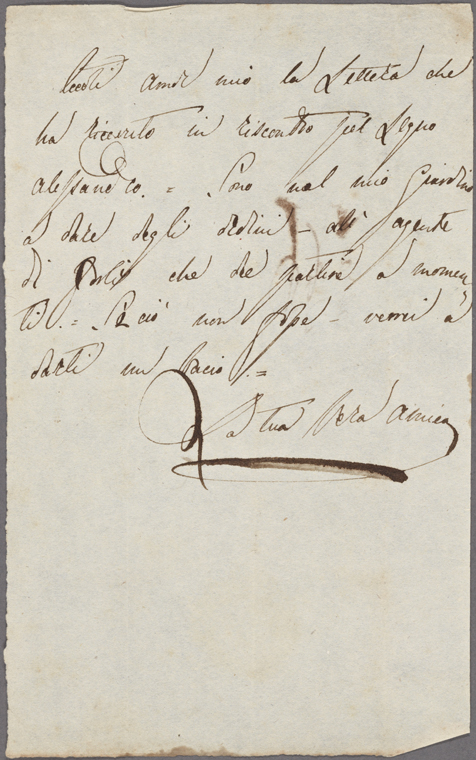 Eccoti Amor mio la Lettera che
ha ricevuto in riscontro pel Legno
Alessandro. = Sono nel mio Giardino
a dare degli ordini - all' agente
di Forlì che de partire a momen
ti. = Se ciò non fosse - verrei a
darti un bacio. =
La tua Vera Amica